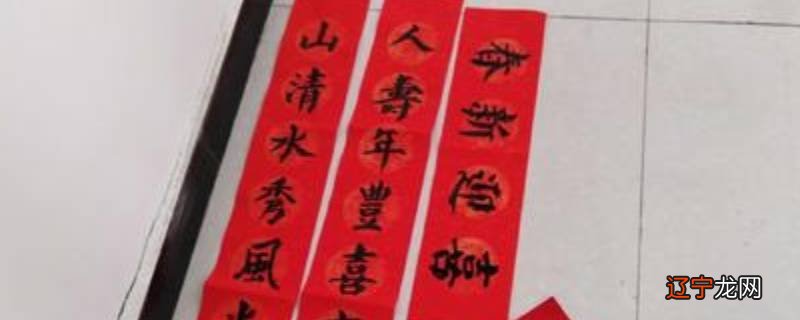 山清水秀風
人壽年豐喜
喜迎新春
辽宁龙网